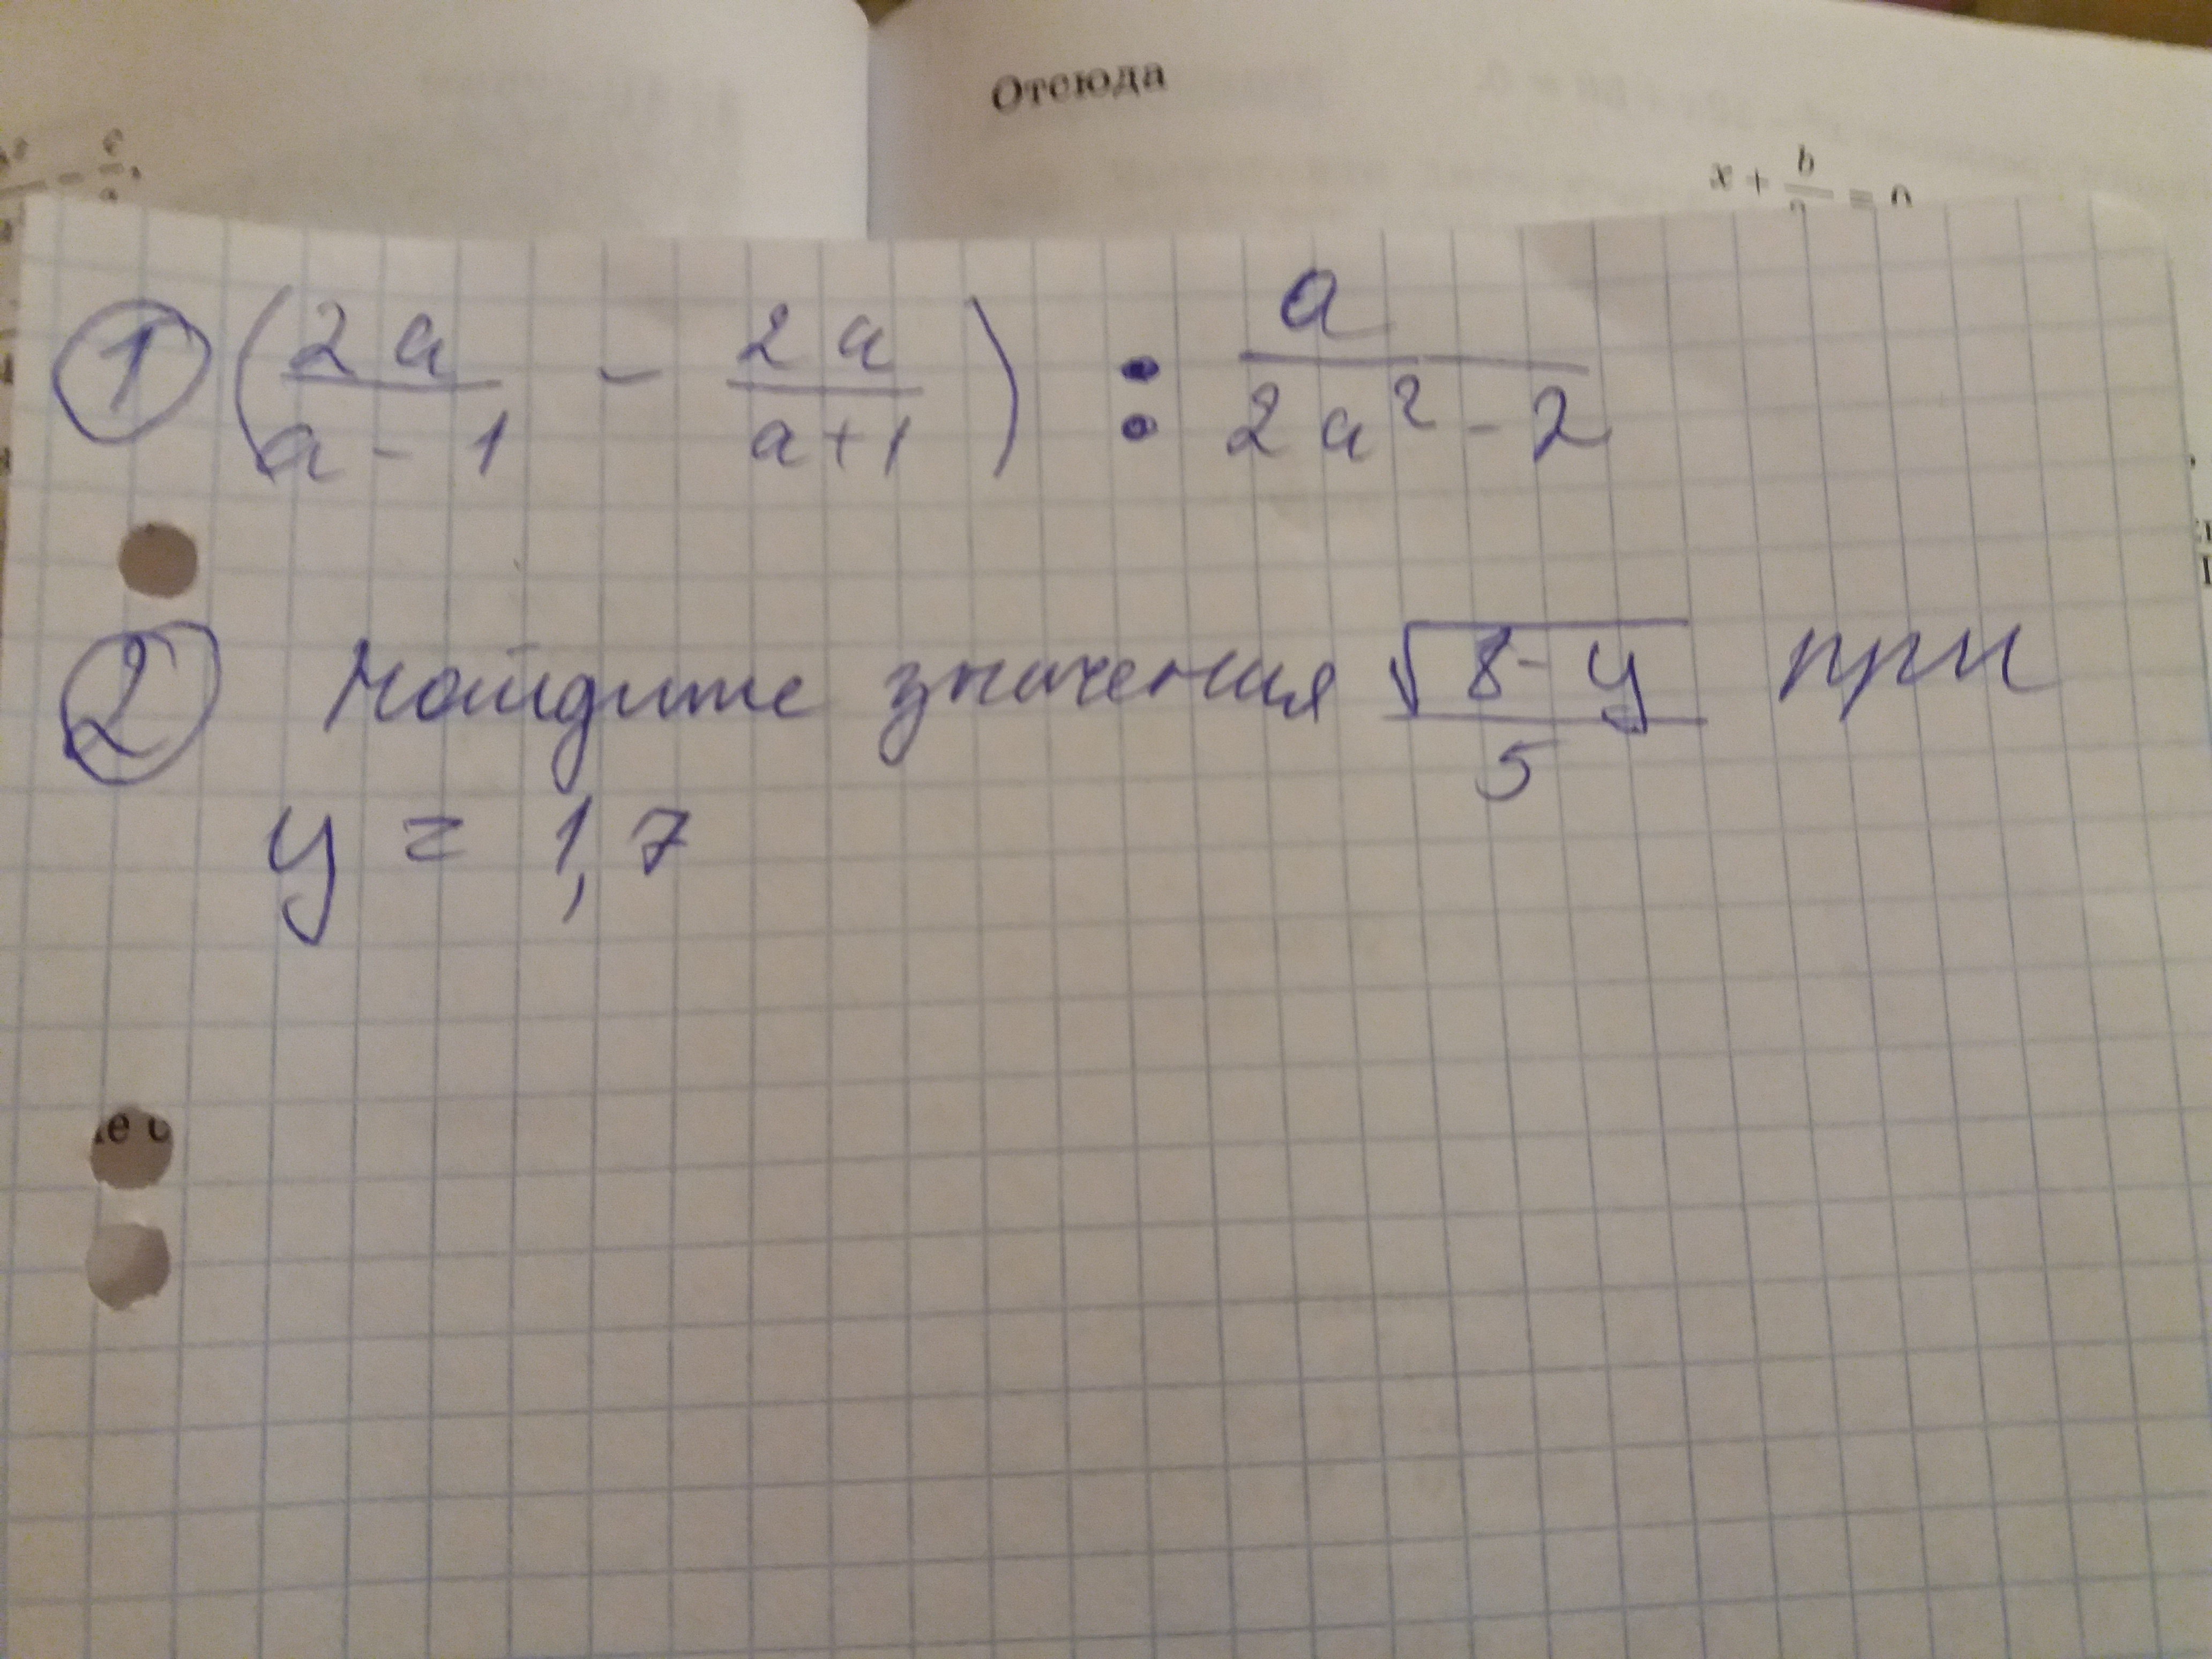 Отсюда
x + b = 0
① (2a/(a-1) - 2a/(a+1)) : a/(2a² - 2)
② Найдите значения √(8-y)/5 при
y = 1,7